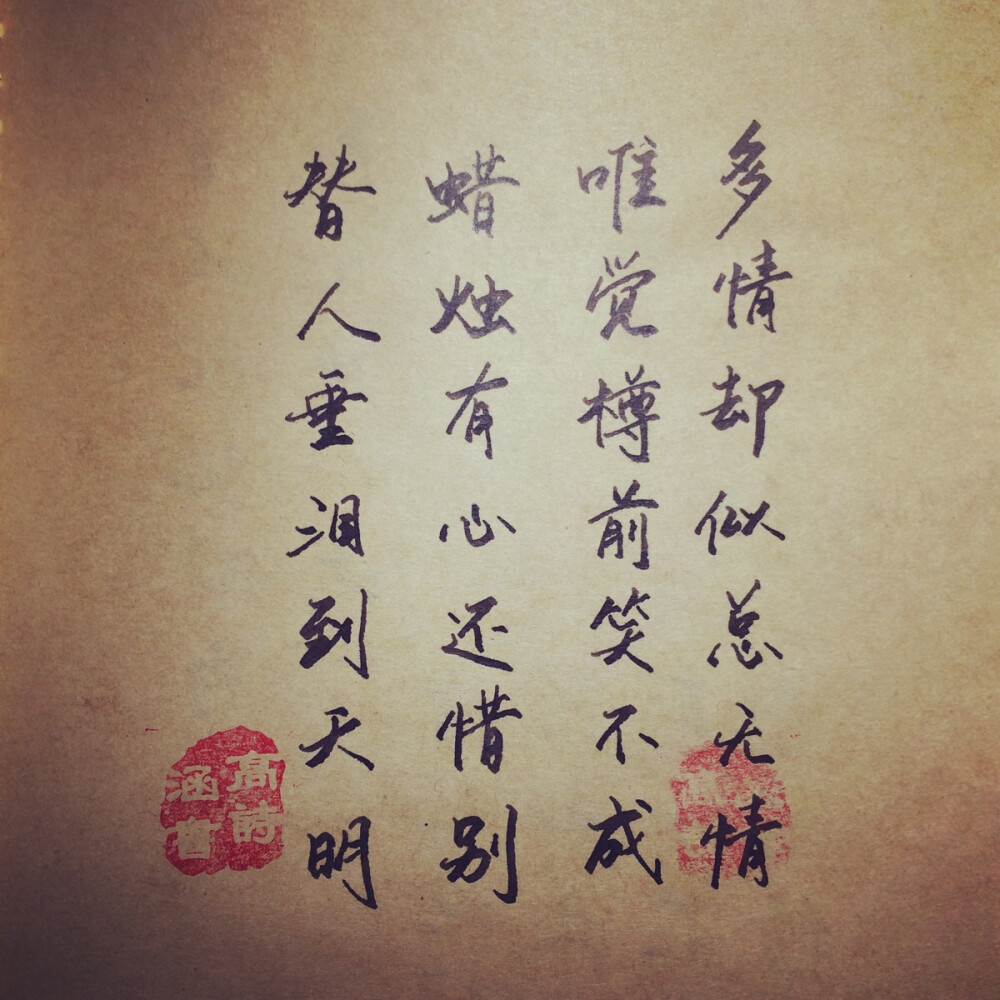 多情却似总无情
唯觉樽前笑不成
蜡烛有心还惜别
替人垂泪到天明
高诗
涵曹